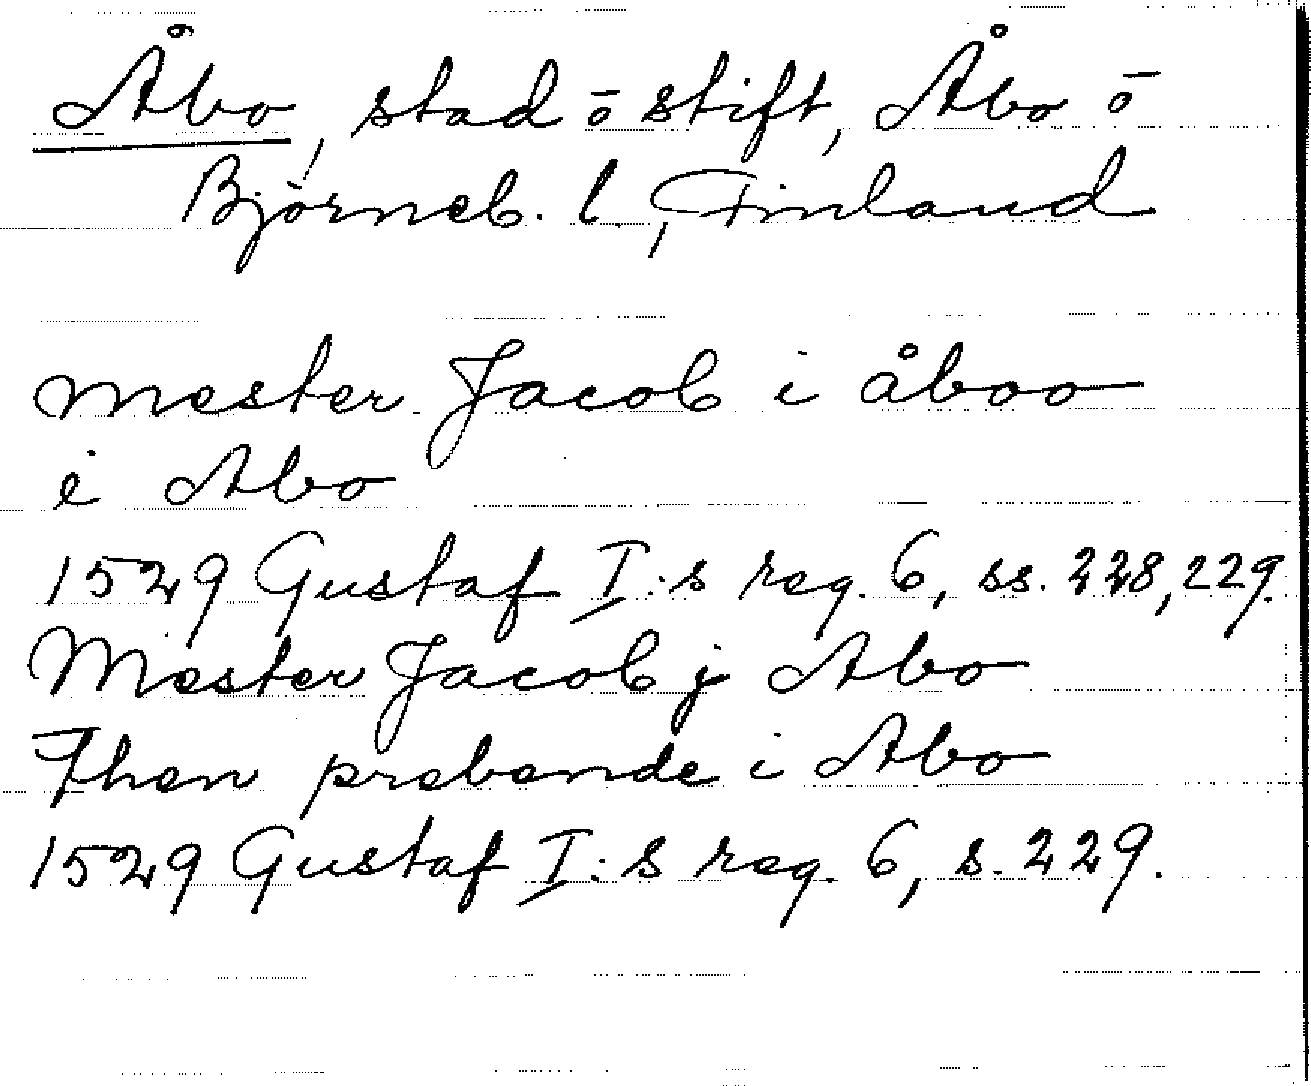 Åbo, stad ō stift, Åbo ō
Björneb. l, Finland
mester Jacob i åboo
i Abo
1529 Gustaf I:s reg. 6, ss. 228, 229.
Mester Jacob j Abo
Then prebende i Abo
1529 Gustaf I:s reg. 6, s. 229.